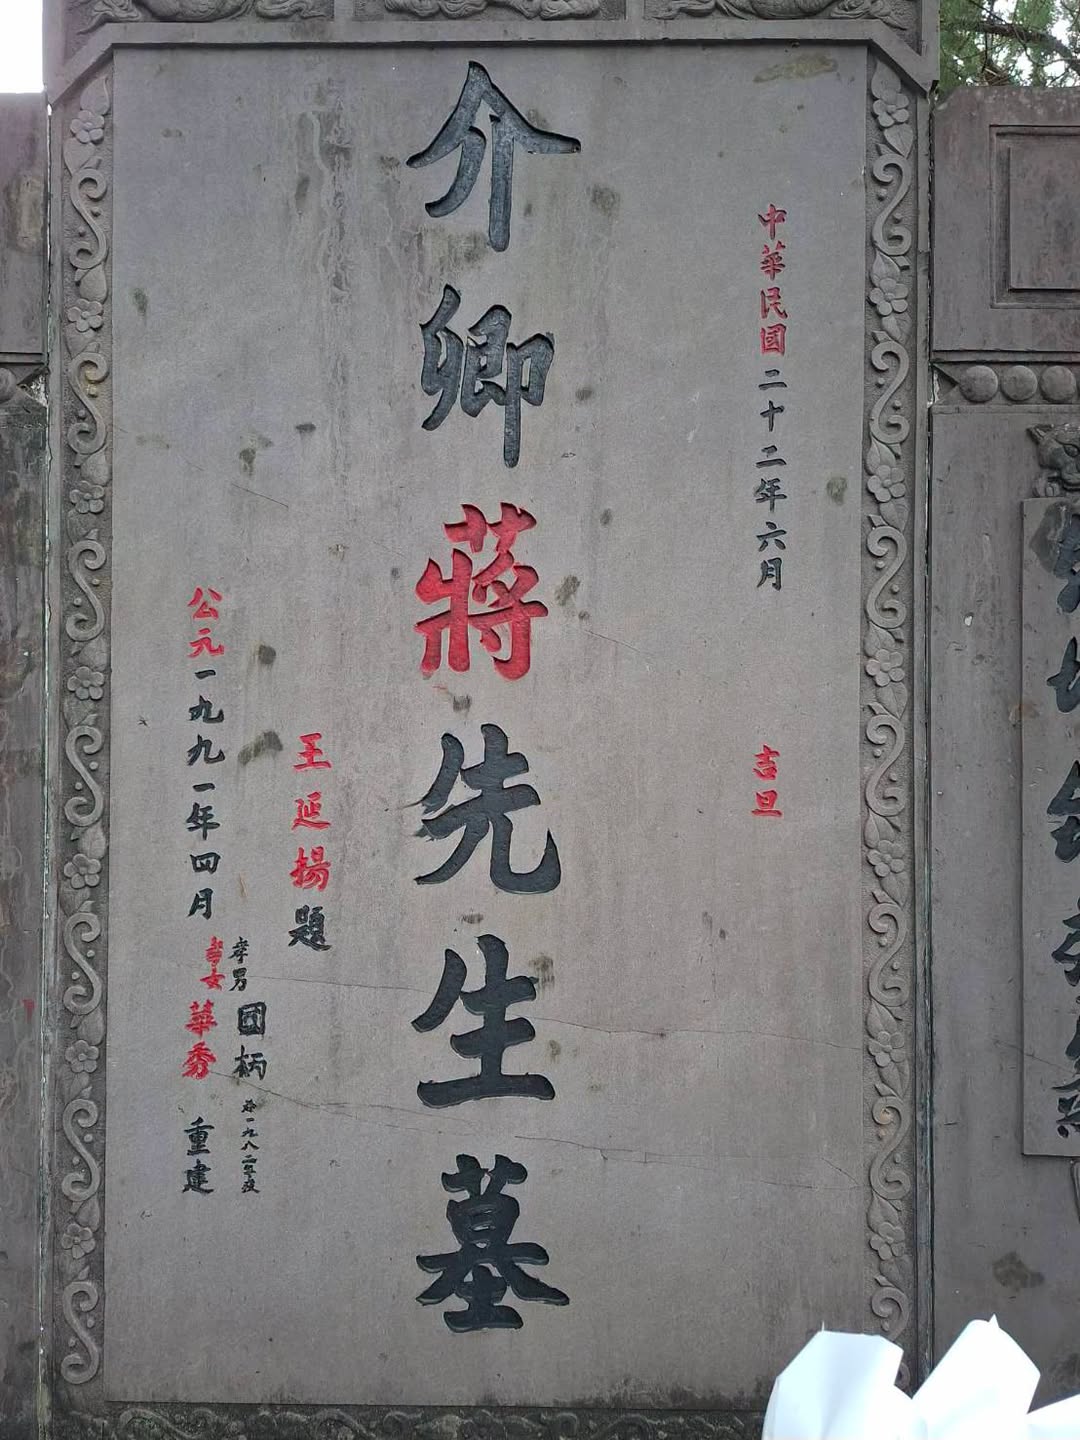 中華民國二十二年六月 吉旦
介卿蔣先生墓
王延揚題
孝男國柄
孝女華秀 重建
公元一九九一年四月